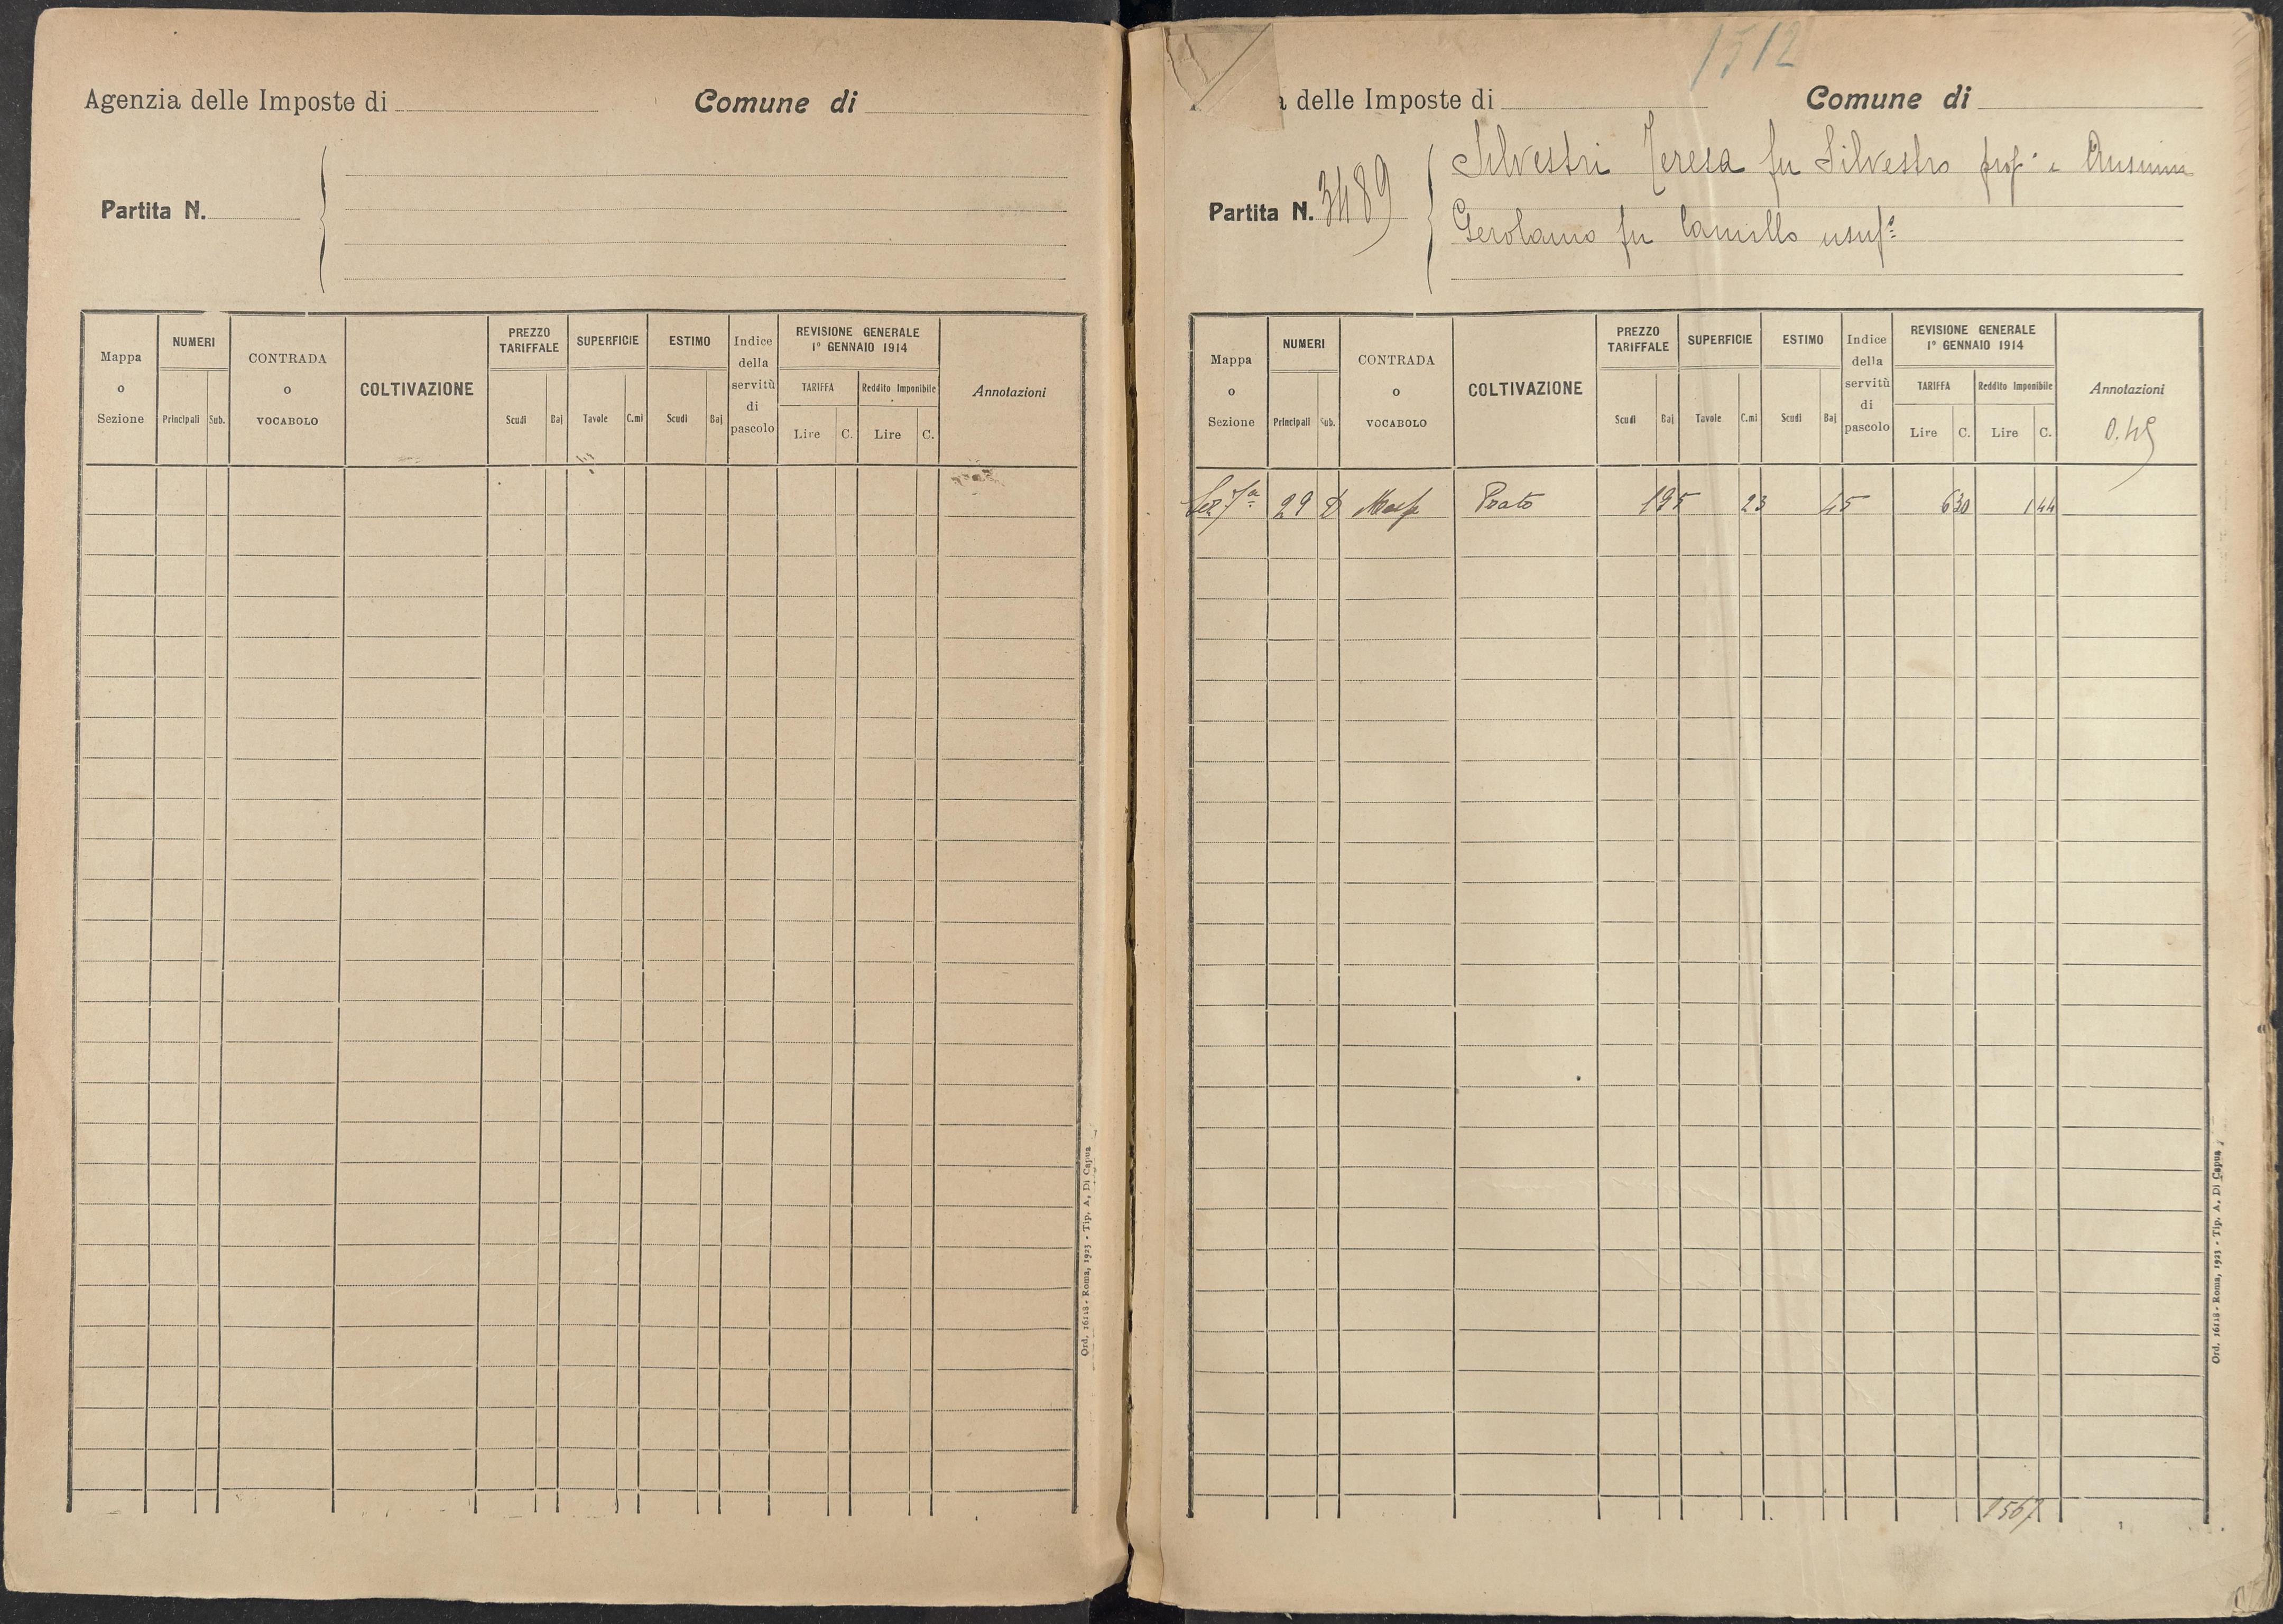 Agenzia delle Imposte di
Comune di
Partita N.
Mappa o Sezione
NUMERI
Principali
Sub.
CONTRADA o VOCABOLO
COLTIVAZIONE
PREZZO TARIFFALE
Scudi
Baj
SUPERFICIE
Tavole
C.mi
ESTIMO
Scudi
Baj
Indice della servitù di pascolo
REVISIONE GENERALE
1° GENNAIO 1914
TARIFFA
Reddito Imponibile
Lire
C.
Lire
C.
Annotazioni
Ord. 16118 - Roma, 1923 - Tip. A. Di Capua
1512
a delle Imposte di
Comune di
Partita N. 3489
Silvestri Teresa fu Silvestro
Gerolamo fu Camillo usuf.
Mappa o Sezione
NUMERI
Principali
Sub.
CONTRADA o VOCABOLO
COLTIVAZIONE
PREZZO TARIFFALE
Scudi
Baj
SUPERFICIE
Tavole
C.mi
ESTIMO
Scudi
Baj
Indice della servitù di pascolo
REVISIONE GENERALE
1° GENNAIO 1914
TARIFFA
Reddito Imponibile
Lire
C.
Lire
C.
Annotazioni
0.45
Sez 7a 29 Prato 195 23 45 630 144
1567
Ord. 16118 - Roma, 1923 - Tip. A. Di Capua